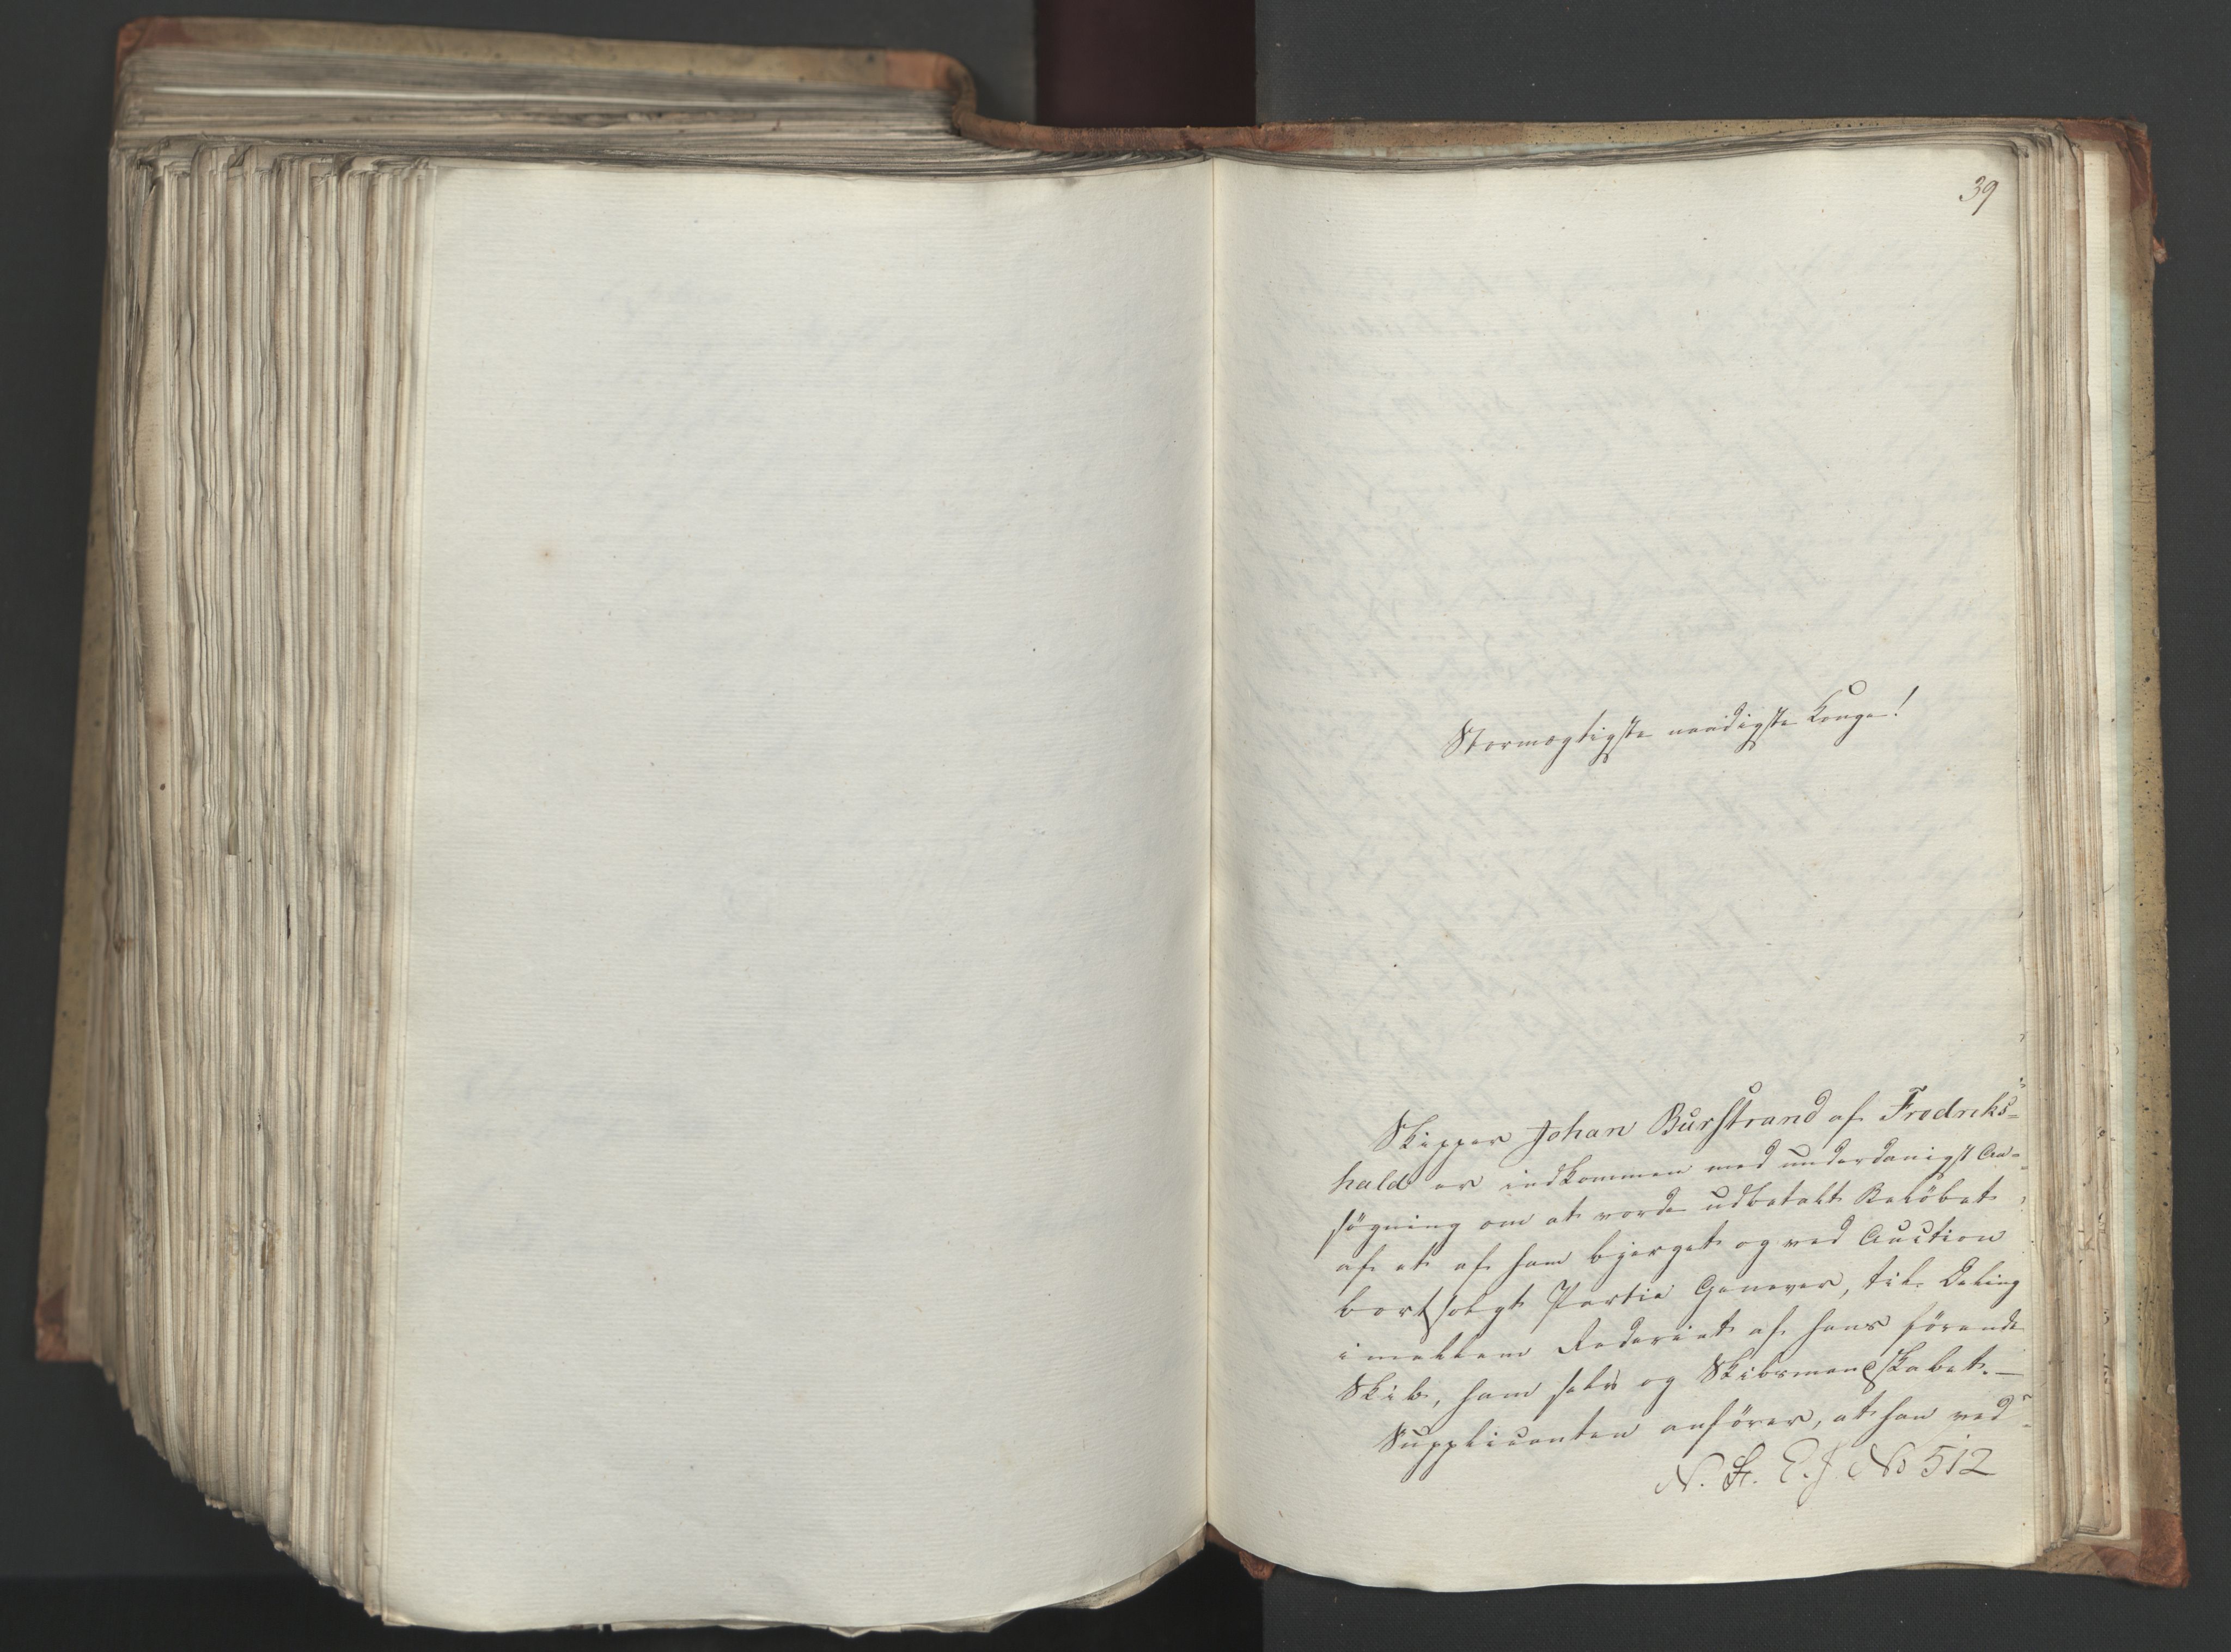 39
Stormægtigste naadigste Konge!
Skipper Johan Burstrand af Fredriks-
hald er indkommen med underdanigst An-
søgning om at vorde udbetalt Beløbet
af et af ham bjerget og ved Auction
bortsolgt Partie Genever, til Deling
imellem Rederiet af hans förende
Skib, ham selv og Skibsmandskabet. —
Supplicanten anförer, at han ved
N. S. E. J. No 512